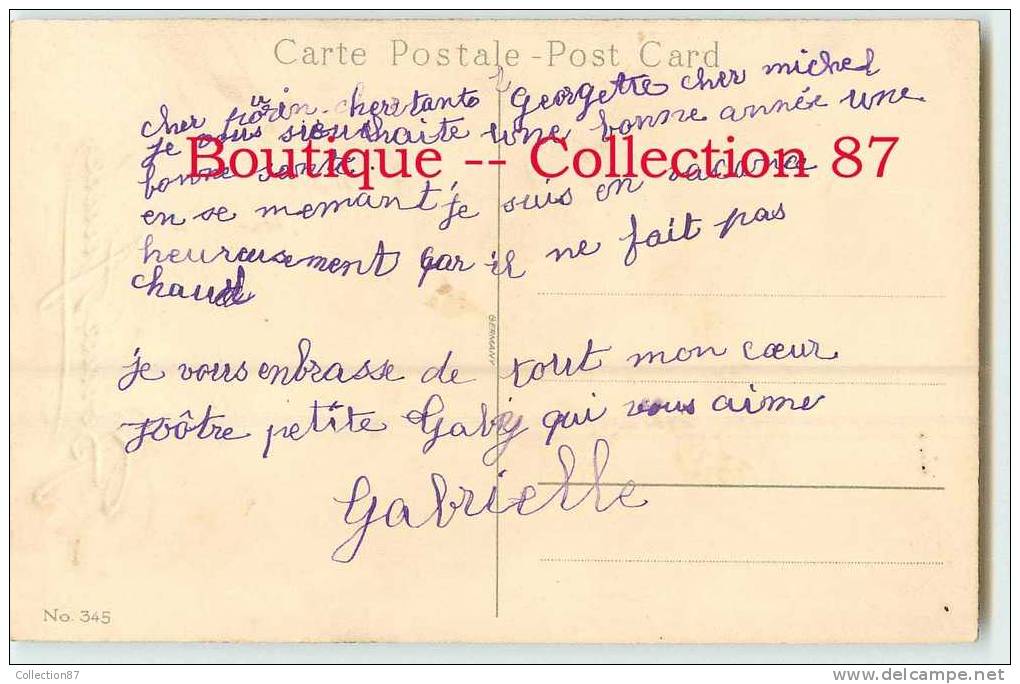 Carte Postale - Post Card
cher cher tante Georgette cher michel
je vous souhaite une bonne année une
bonne santé
Boutique -- Collection 87
en se memant je suis en vacance
heureusement car il ne fait pas
chaud
GERMANY
je vous enbrasse de tout mon cœur
vôtre petite Gaby qui vous aime
Gabrielle
No. 345
Collection87
delcampe.net